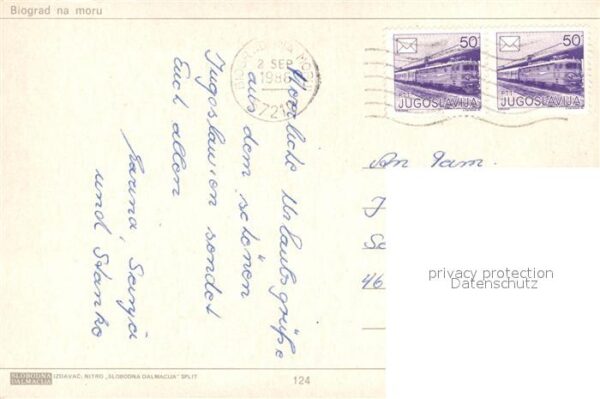 Biograd na moru
2 SEP
1986
5721
50
50
PTT JUGOSLAVIJA
PTT JUGOSLAVIJA
Herzliche Urlaubsgrüße
aus dem schönen
Jugoslawien sendet
Euch allen
und Stanko
An Fam.
J
Sc
46
privacy protection
Datenschutz
SLOBODNA
DALMACIJA
IZDAVAČ: NITRO „SLOBODNA DALMACIJA" SPLIT
124